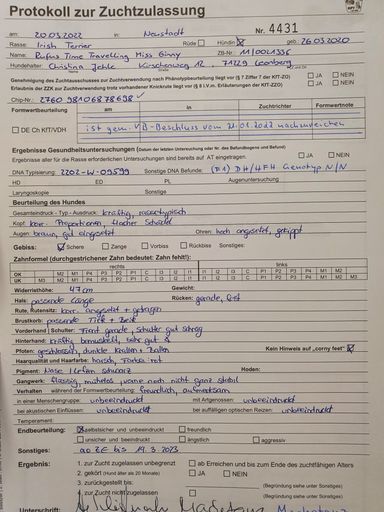 Protokoll zur Zuchtzulassung
am: 20.03.2022 in Neustadt Nr. 4431
Rasse: Irish Terrier Rüde Hündin geb. 26.03.2020
Name: Rufus Time Travelling Miss Ginny ZB-Nr. 110021336
Hundehalter: Christina Jehle, Kirschenweg 12, 71229 Leonberg
Genehmigung des Zuchtausschusses zur Zuchtverwendung nach Phänotypbeurteilung liegt vor (§ 7 Ziffer 7 der KfT-ZO) JA NEIN
Erlaubnis der ZZK zur Zuchtverwendung trotz vorhandener Knickrute liegt vor (§ 8 I.V.m. Erläuterungen der KfT-ZO) JA NEIN
Chip-Nr.: 276098106878698
Formwertbeurteilung am in Zuchtrichter Formwertnote
DE Ch KfT/VDH ist gem. VB-Beschluss vom 21.01.2022 nachzureichen
Ergebnisse Gesundheitsuntersuchungen (Datum der letzten Untersuchung oder Nr. des Befundbogens und Befund)
Ergebnisse aller für die Rasse erforderlichen Untersuchungen sind bereits auf AT eingetragen. JA NEIN
DNA Typisierung: 2202-W-09599 Sonstige DNA Befunde: DH/HFH Genotyp N/N
HD ED PL Augenuntersuchung
Laryngoskopie Sonstige
Beurteilung des Hundes
Gesamteindruck - Typ - Ausdruck: kräftig, rassetypisch
Kopf: korr. Proportionen, flacher Schädel
Augen: braun, gut eingesetzt Ohren: hoch angesetzt, gekippt
Gebiss: Schere Zange Vorbiss Rückbiss Sonstiges:
Zahnformel (durchgestrichener Zahn bedeutet: Zahn fehlt!):
rechts links
OK M2 M1 P4 P3 P2 P1 C I3 I2 I1 I1 I2 I3 C P1 P2 P3 P4 M1 M2
UK M3 M2 M1 P4 P3 P2 P1 C I3 I2 I1 I1 I2 I3 C P1 P2 P3 P4 M1 M2 M3
Widerristhöhe: 47 cm Gewicht:
Hals: passende Länge Rücken: gerade, fest
Rute, Rutensitz: korr. angesetzt + getragen
Brustkorb: passende Tiefe + Breite
Vorderhand | Schulter: Front gerade, Schulter gut schräg
Hinterhand: kräftig bemuskelt, sehr gut
Pfoten: geschlossen, dunkle Krallen + Ballen Kein Hinweis auf „corny feet"
Haarqualität und Haarfarbe: harsch, Farbe: rot
Pigment: Nase Lefzen schwarz Hoden:
Gangwerk: flüssig, mühelos, vorne noch nicht ganz stabil
Verhalten während der Formwertbeurteilung: freundlich, aufmerksam
in einer Menschengruppe: unbeeindruckt mit Artgenossen: unbeeindruckt
bei akustischen Einflüssen: unbeeindruckt bei auffälligen optischen Reizen: unbeeindruckt
Temperament:
Endbeurteilung: selbstsicher und unbeeindruckt freundlich
unsicher und beeindruckt ängstlich aggressiv
Sonstiges: ab ZE bis 19.3.2023
Ergebnis: 1. zur Zucht zugelassen unbegrenzt ab Erreichen und bis zum Ende des zuchtfähigen Alters
2. gekört (Hund älter als 20 Monate) JA NEIN
3. zurückgestellt bis: (Begründung siehe unter Sonstiges)
4. zur Zucht nicht zugelassen (Begründung siehe unter Sonstiges)
Unterschrift: